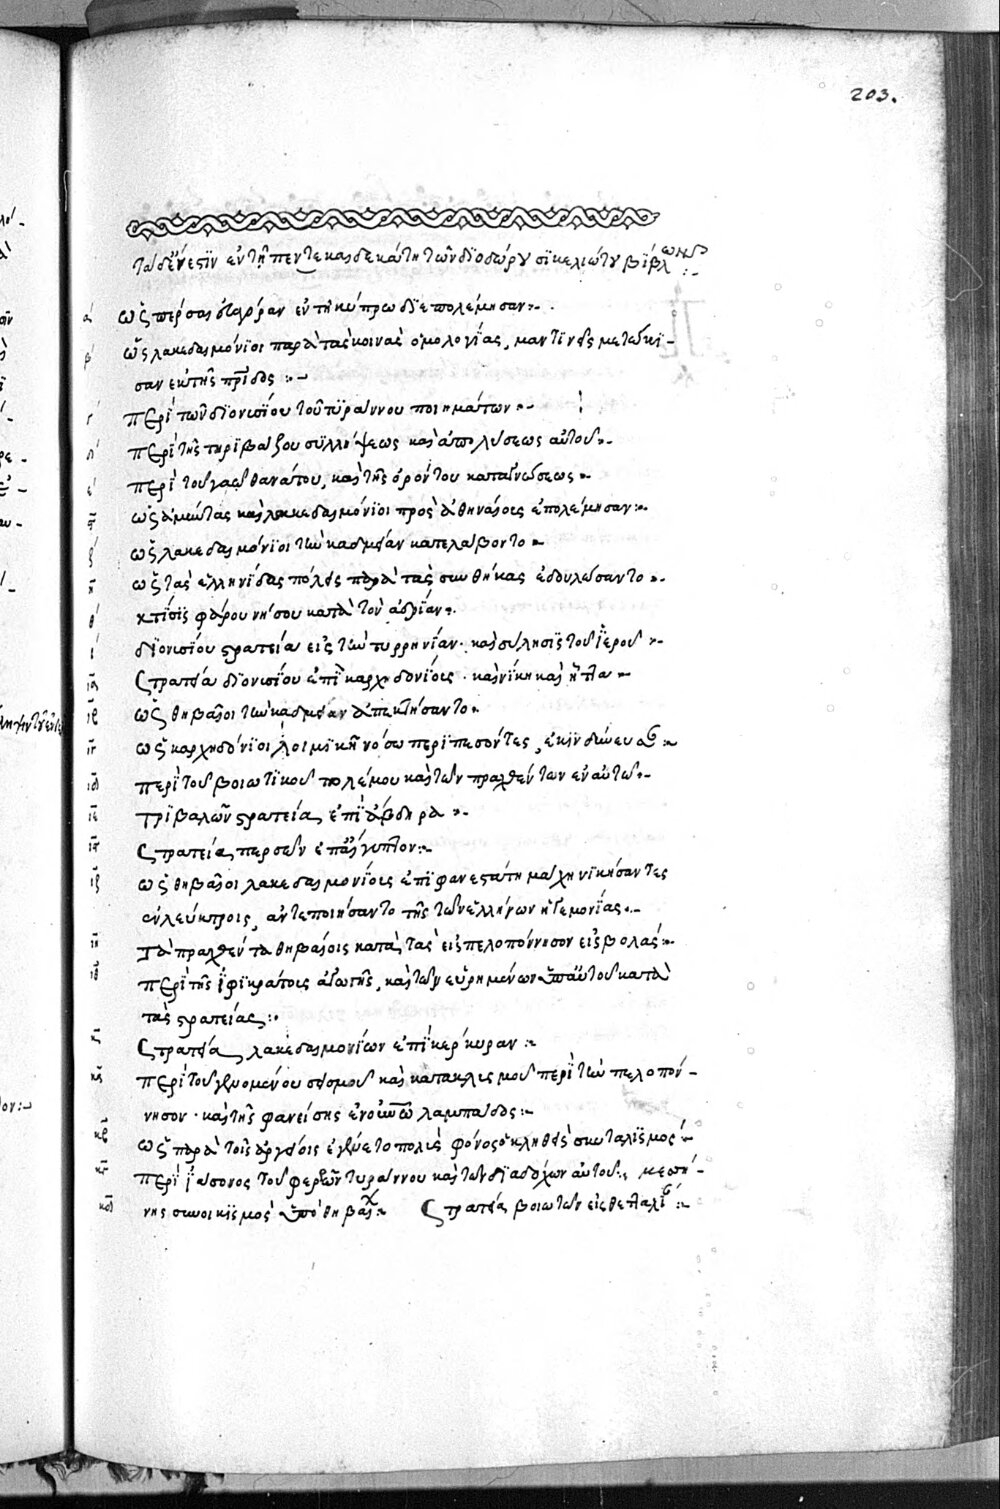 203.
τάδ' ἔνεστιν ἐν τῇ πεντεκαιδεκάτη τῶν διοδώρου σικελιώτου βίβλων
α ὡς πέρσαι εὐαγόραν ἐν τῇ κύπρω διεπολέμησαν
β ὡς λακεδαιμόνιοι παρὰ τὰς κοινὰς ὁμολογίας, μαντινεῖς μετώκι-
σαν ἐκ τῆς πρίδος
γ περὶ τῶν διονυσίου τοῦ τυράννου ποιημάτων
δ περὶ τῆς τηριβάζου συλλήψεως καὶ ἀπολύσεως αὐτοῦ
ε περὶ τοῦ γαω θανάτου, καὶ τῆς ὀρόντου καταγνώσεως
ς ὡς ἀμύντας καὶ λακεδαιμόνιοι πρὸς ἀθηναίοις ἐπολέμησαν
ζ ὡς λακεδαιμόνιοι τὴν καδμείαν κατελάβοντο
η ὡς τὰς ἑλληνίδας πόλεις παρὰ τὰς συνθήκας ἐδουλώσαντο
θ κτίσις φάρου νήσου κατὰ τὸν ἀδρίαν
ι διονυσίου στρατεία εἰς τὴν τυρρηνίαν καὶ σύλησις τοῦ ἱεροῦ
ια Στρατεία διονυσίου ἐπὶ καρχηδονίοις καὶ νίκη καὶ ἧττα
ιβ ὡς θηβαῖοι τὴν καδμείαν ἀπεκτήσαντο
ιγ ὡς καρχηδόνιοι λοιμικῆ νόσω περιπεσόντες, ἐκινδύνευσαν
ιδ περὶ τοῦ βοιωτικοῦ πολέμου καὶ τῶν πραχθέντων ἐν αὐτῶ
ιε τριβαλῶν στρατεία, ἐπὶ ἄβδηρα
ις Στρατεία περσῶν ἐπ' αἴγυπτον
ιζ ὡς θηβαῖοι λακεδαιμονίοις ἐπιφανεστάτη μάχη νικήσαντες
ἐν λεύκτροις, ἀντεποιήσαντο τῆς τῶν ἑλλήνων ἡγεμονίας
ιη Τὰ πραχθέντα θηβαίοις κατὰ τὰς εἰς πελοπόννησον εἰσβολάς
ιθ περὶ τῆς ἰφικράτοις ἀγωγῆς, καὶ τῶν εὑρημένων ὑπ' αὐτοῦ κατὰ
τὰς στρατείας
κ Στρατεία λακεδαιμονίων ἐπὶ κέρκυραν
κα περὶ τοῦ γενομένου σεισμοῦ καὶ κατακλισμοῦ περὶ τὴν πελοπόν-
νησον καὶ τῆς φανείσης ἐν οὐνῶ λαμπάδος
κβ ὡς παρὰ τοῖς ἀργείοις ἐγένετο πολὺς φόνος ὁ κληθεὶς σκυταλισμός
κγ περὶ ἰάσονος τοῦ φερῶν τυράννου καὶ τῶν διαδόχων αὐτοῦ μεσσή-
κδ νης συνοικισμὸς ὑπὸ θηβαίων Στρατεία βοιωτῶν εἰς θετταλίαν